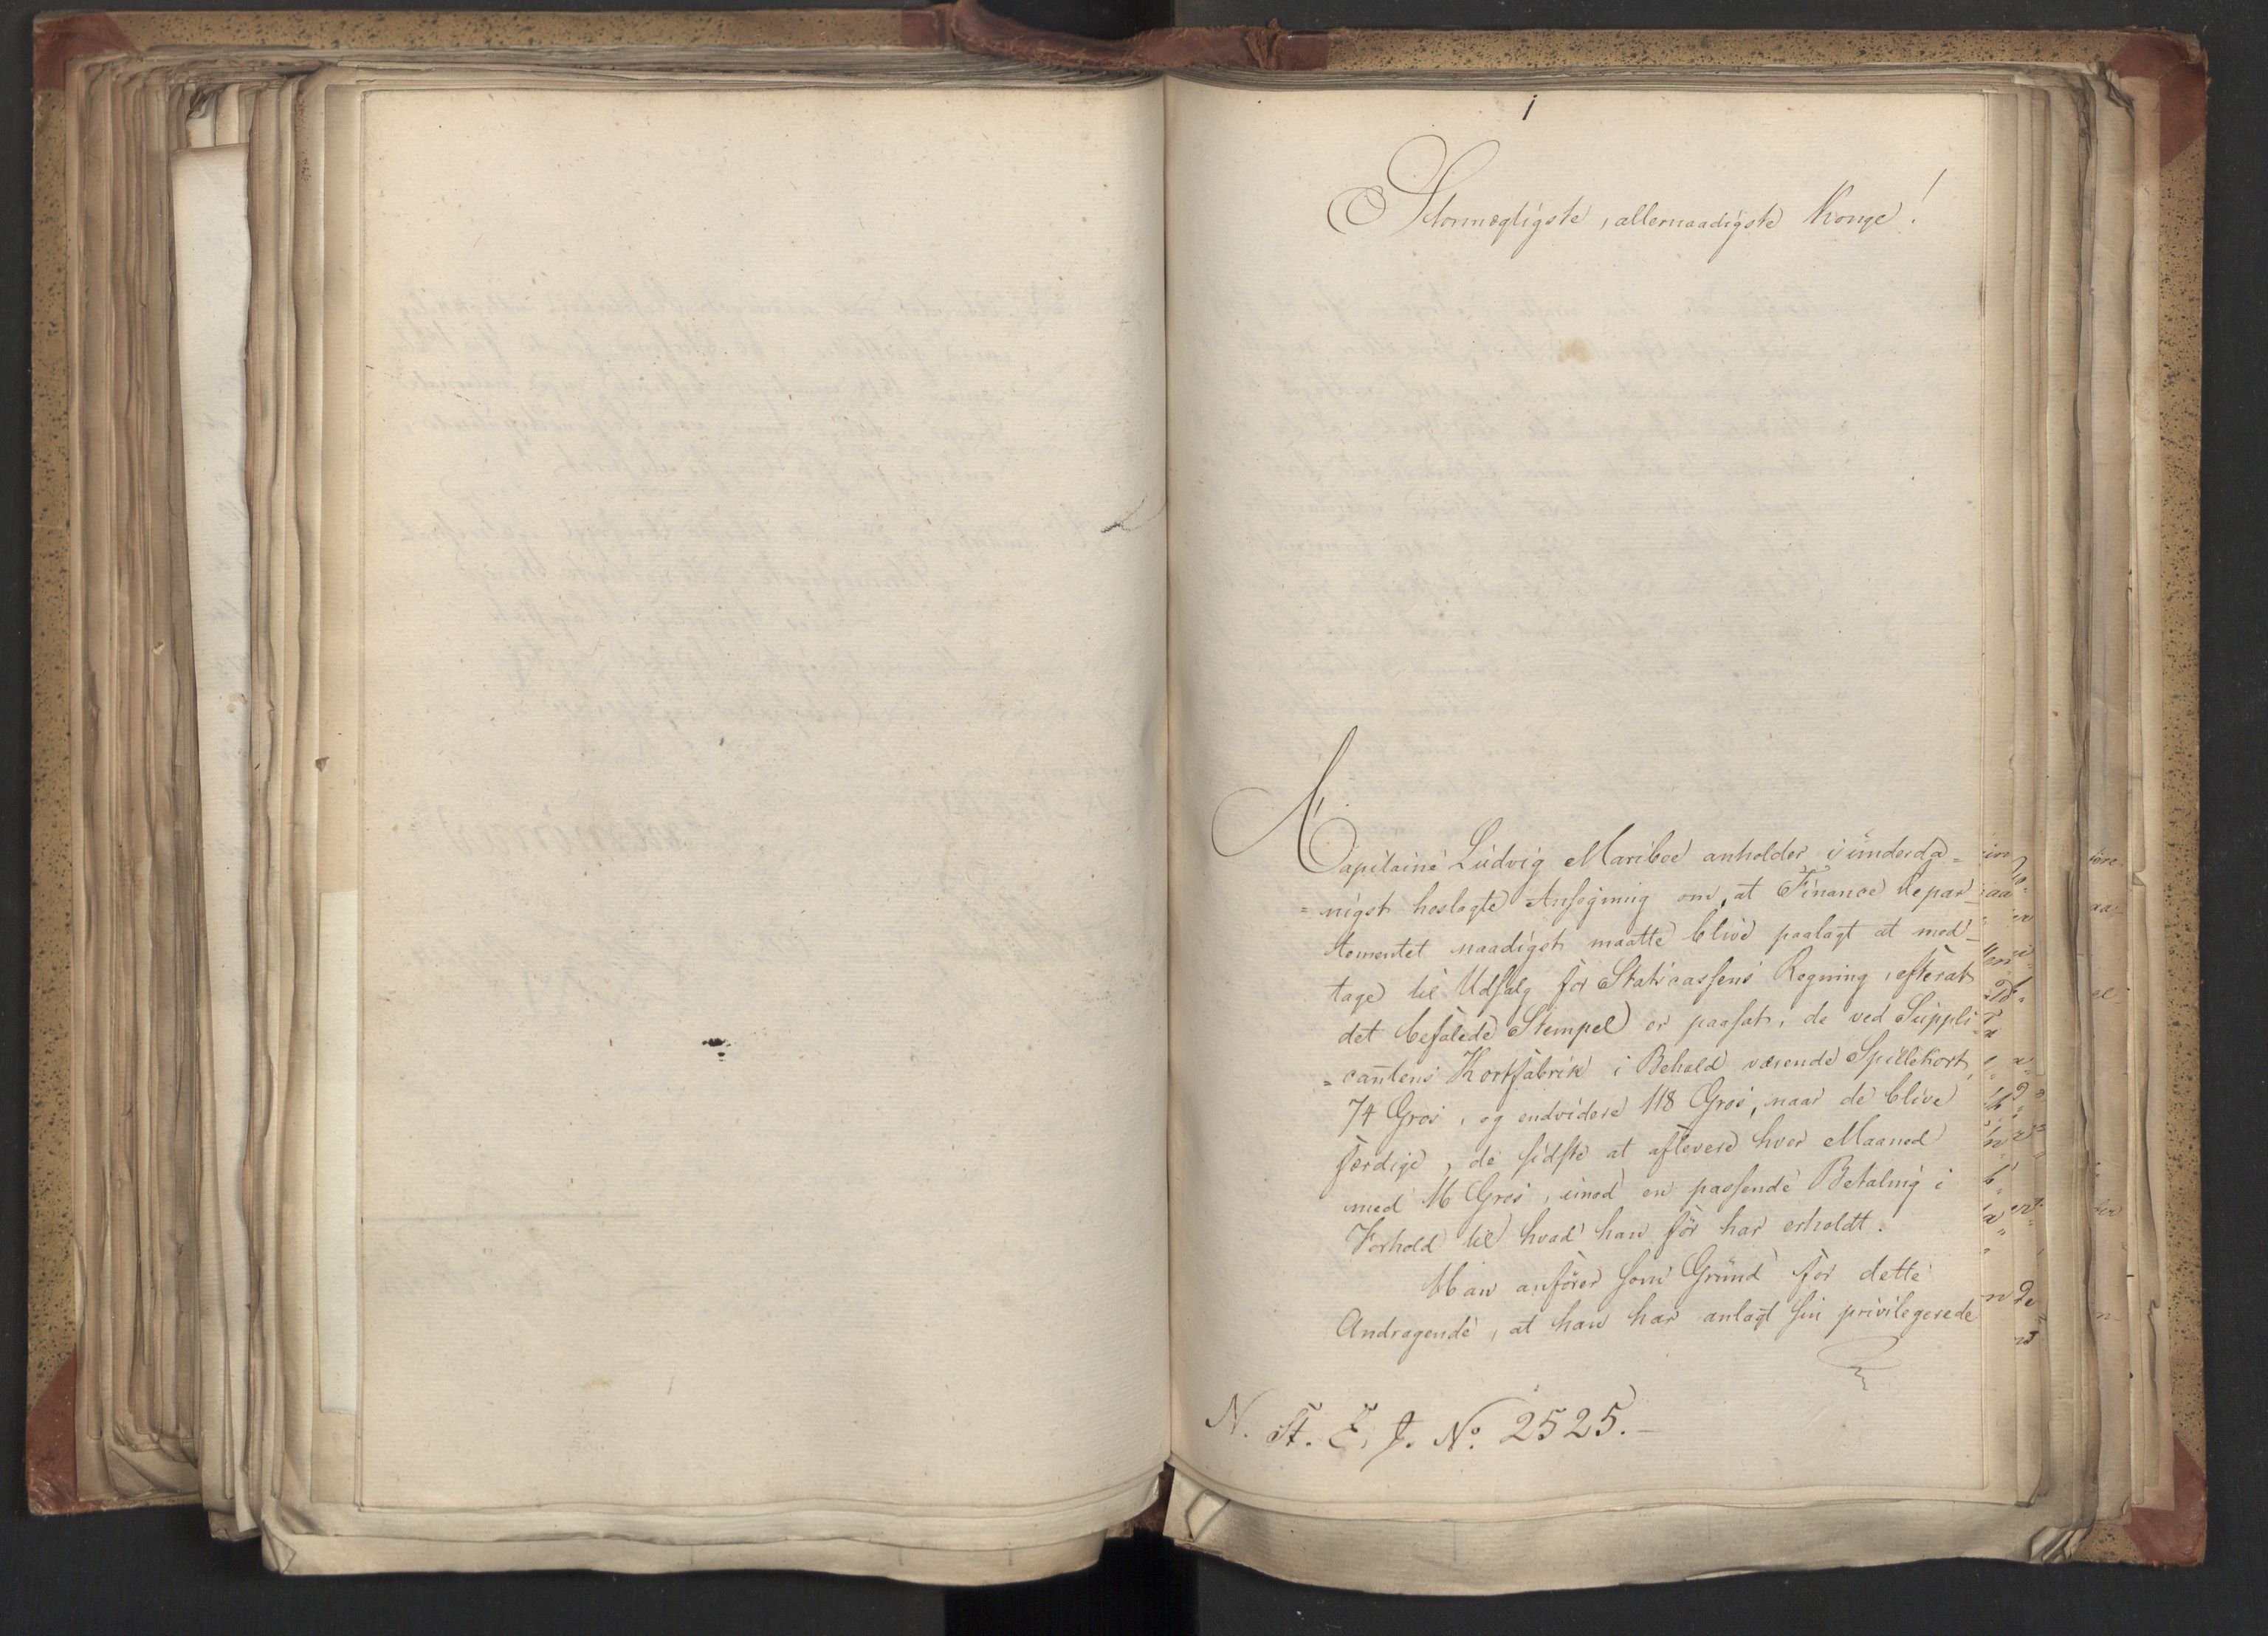 1
Stormægtigste, allernaadigste Konge!
Capitaine Ludvig Mariboe anholder i underda=
=nigst hoslagte Ansøgning om, at Finance Depar-
tementet naadigst maatte blive paalagt at mod-
tage til Udsalg for Statscassens Regning, efterat
det befalede Stempel er paasat, de ved Suppli-
=cantens Kortfabrik i Behold værende Spillekort,
74 Gros, og endvidere 118 Gros, naar de blive
færdige, de sidste at aflevere hver Maaned
med 16 Gros, imod en passende Betaling i
Forhold til hvad han før har erholdt.
Han anfører som Grund for dette
Andragende, at han har anlagt sin privilegerede
N. St. E. J. No. 2525.-